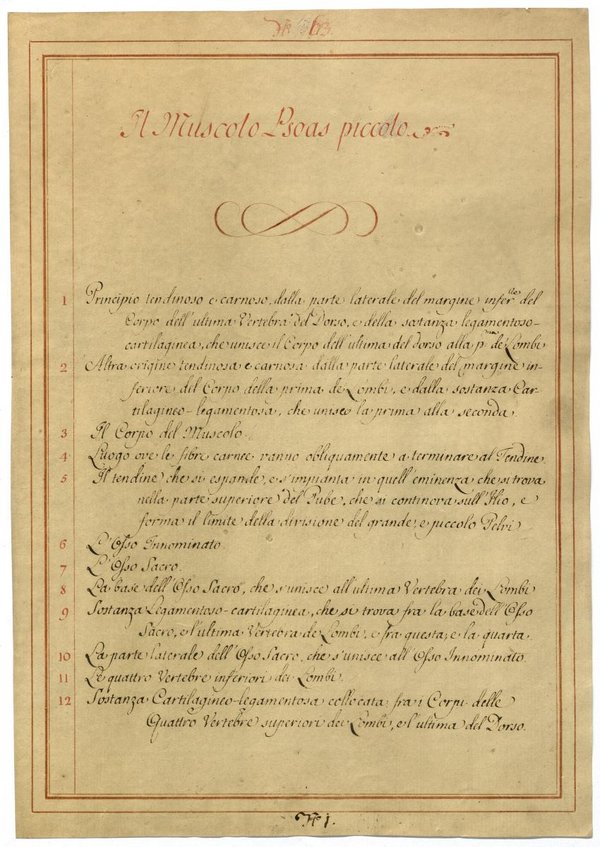 Il Muscolo Psoas piccolo
1 Principio tendinoso e carnoso, dalla parte laterale del margine infer.re del
Corpo dell'ultima Vertebra del Dorso, e della sostanza legamentoso-
cartilaginea, che unisce il Corpo dell'ultima del dorso alla p.ma de Lombi
2 Altra origine tendinosa e carnosa dalla parte laterale del margine in-
feriore del Corpo della prima de Lombi, e dalla sostanza Car-
tilagineo-legamentosa, che unisce la prima alla seconda.
3 Il Corpo del Muscolo.
4 Luogo ove le fibre carnee vanno obliquamente a terminare al Tendine
5 Il tendine che si espande, e s'impianta in quell'eminenza che si trova
nella parte superiore del Pube, che si continova sull'Ilio, e
forma il limite della divisione del grande, e piccolo Pelvi
6 L'Osso Innominato.
7 L'Osso Sacro.
8 La base dell'Osso Sacro, che s'unisce all'ultima Vertebra dei Lombi
9 Sostanza Legamentoso-cartilaginea, che si trova fra la base dell'Osso
Sacro, e l'ultima Vertebra de Lombi, e fra questa, e la quarta.
10 La parte laterale dell'Osso Sacro, che s'unisce all'Osso Innominato.
11 Le quattro Vertebre inferiori dei Lombi.
12 Sostanza Cartilagineo-legamentosa collocata fra i Corpi delle
Quattro Vertebre superiori dei Lombi, e l'ultima del Dorso.